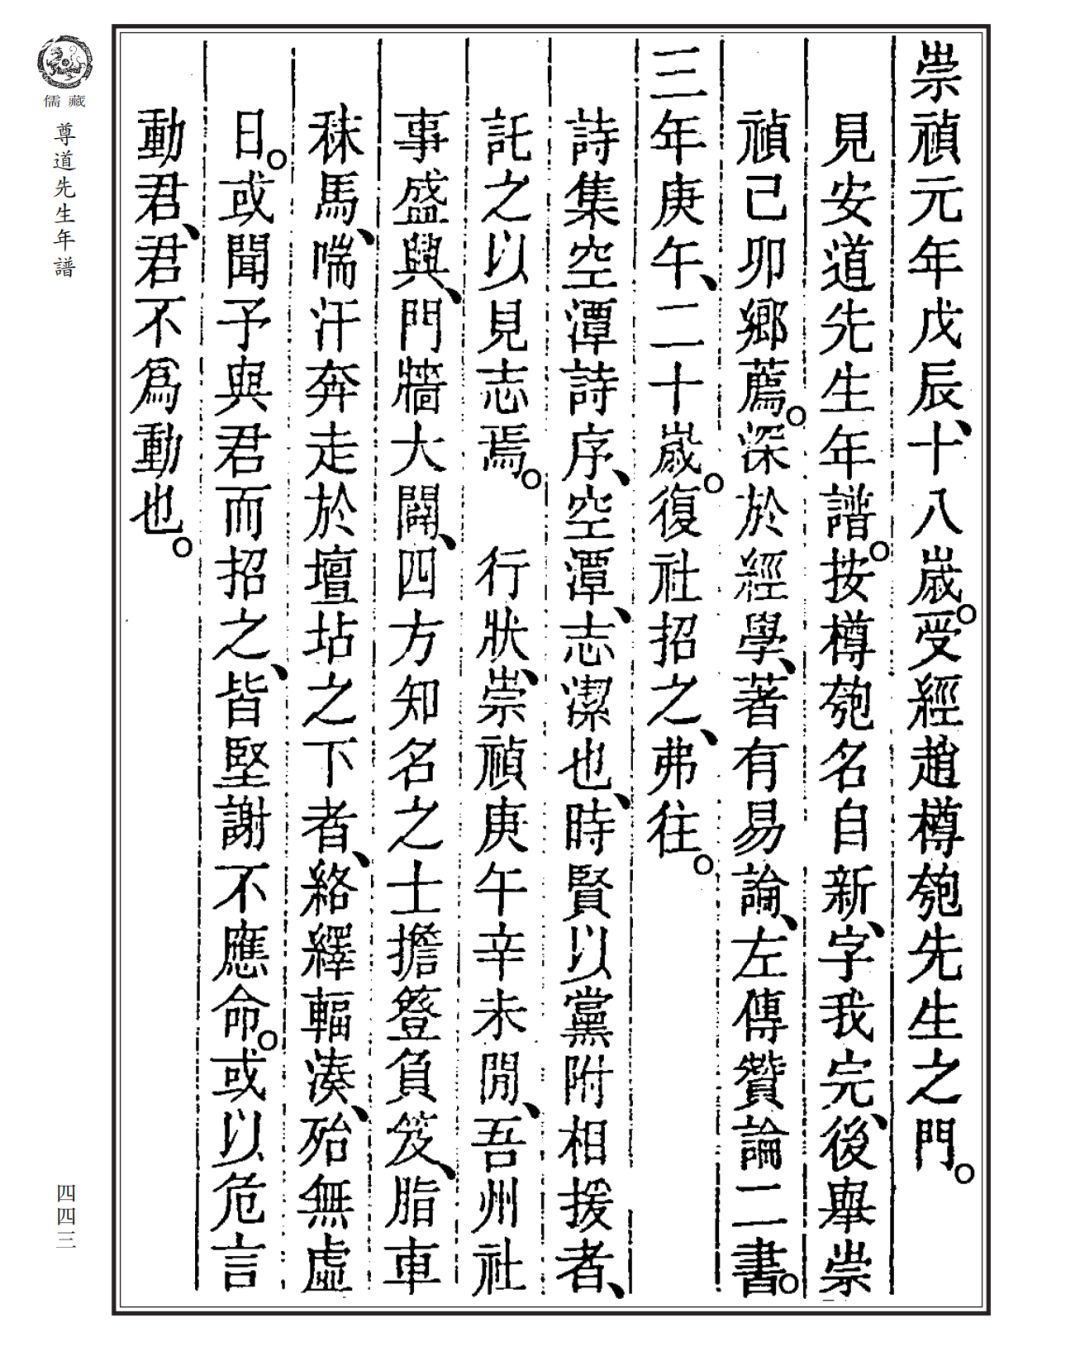 崇禎元年戊辰、十八歲。受經趙樽匏先生之門。
見安道先生年譜。按樽匏名自新、字我完、後舉崇
禎己卯鄉薦。深於經學、著有易論、左傳贊論二書。
三年庚午、二十歲。復社招之、弗往。
詩集空潭詩序、空潭、志潔也、時賢以黨附相援者、
託之以見志焉。 行狀、崇禎庚午辛未閒、吾州社
事盛興、門牆大闢、四方知名之士擔簦負笈、脂車
秣馬、喘汗奔走於壇坫之下者、絡繹輻湊、殆無虛
日。或聞予與君而招之、皆堅謝不應命。或以危言
動君、君不爲動也。
儒藏
尊道先生年譜
四四三